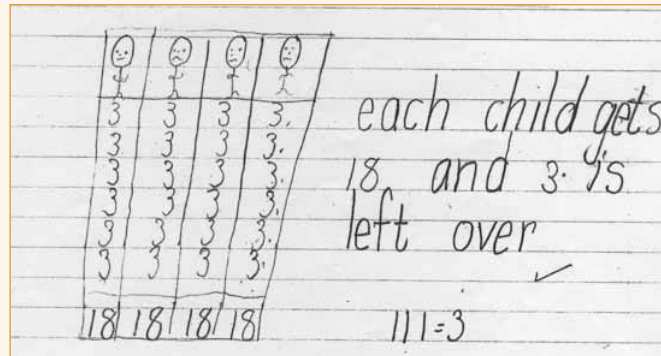 3 3 3 3.
3 3 3 3.
3 3 3 3.
3 3 3 3.
3 3 3 3.
3 3 3 3.
18 18 18 18
each child gets
18 and 3. is
left over
111=3